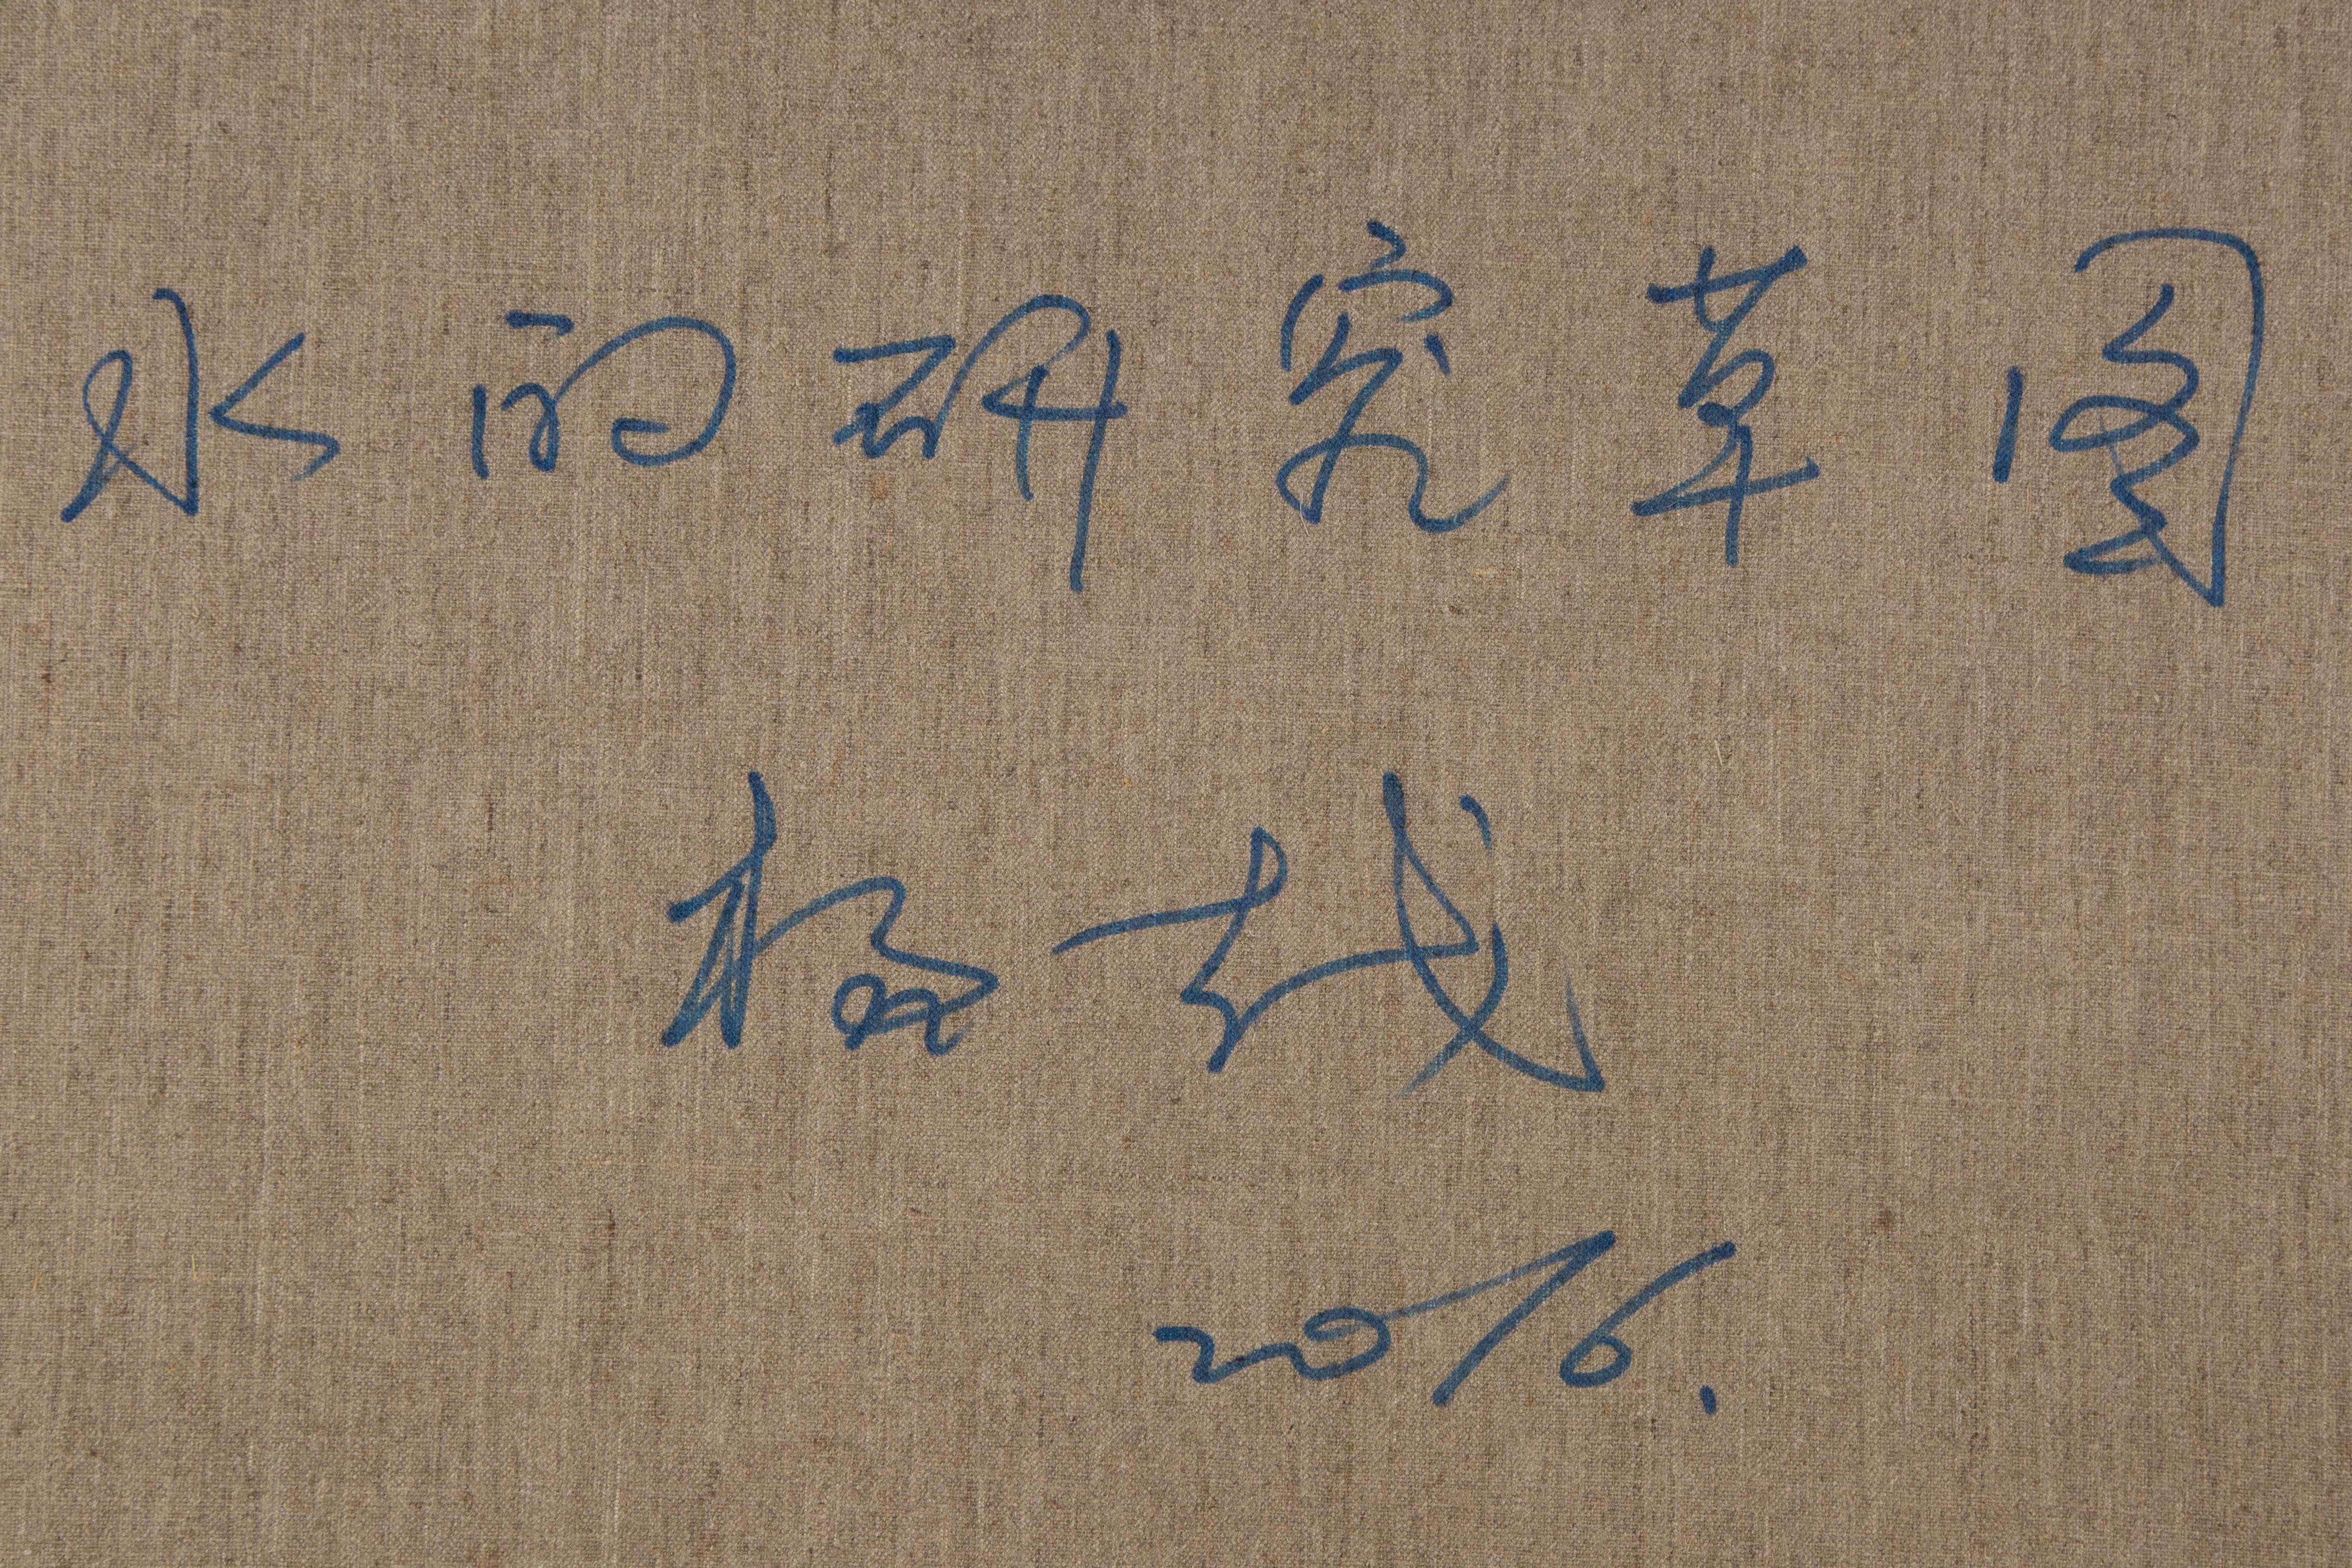 水的研究草图
2016.